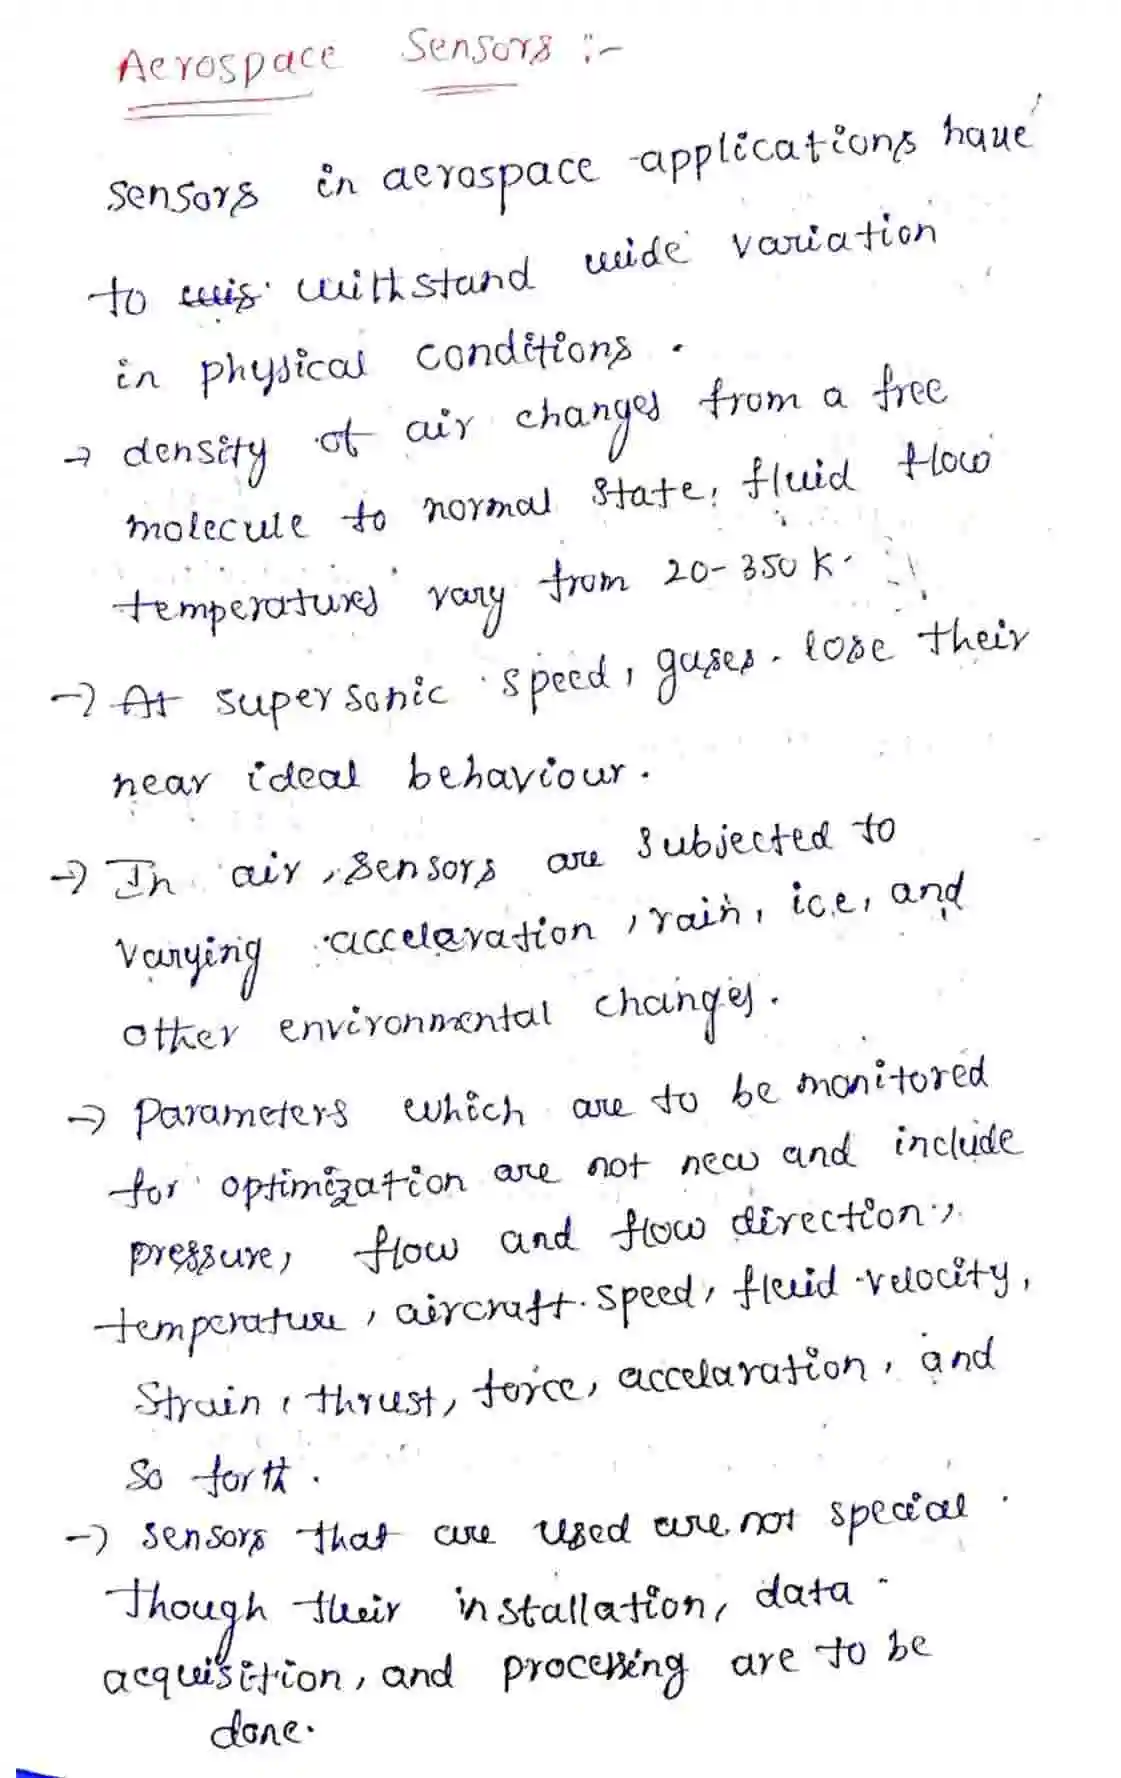 Aerospace Sensors :-
sensors in aerospace applications have
to wis withstand wide variation
in physical conditions.
→ density of air changes from a free
molecule to normal state, fluid flow
temperatures vary from 20-350 K.
→ At supersonic speed, gases lose their
near ideal behaviour.
→ In air, sensors are subjected to
varying accelaration, rain, ice, and
other environmental changes.
→ parameters which are to be monitored
for optimization are not new and include
pressure, flow and flow direction,
temperature, aircraft speed, fluid velocity,
Strain, thrust, force, accelaration, and
so forth.
→ sensors that are used are not special
though their installation, data
acquisition, and processing are to be
done.